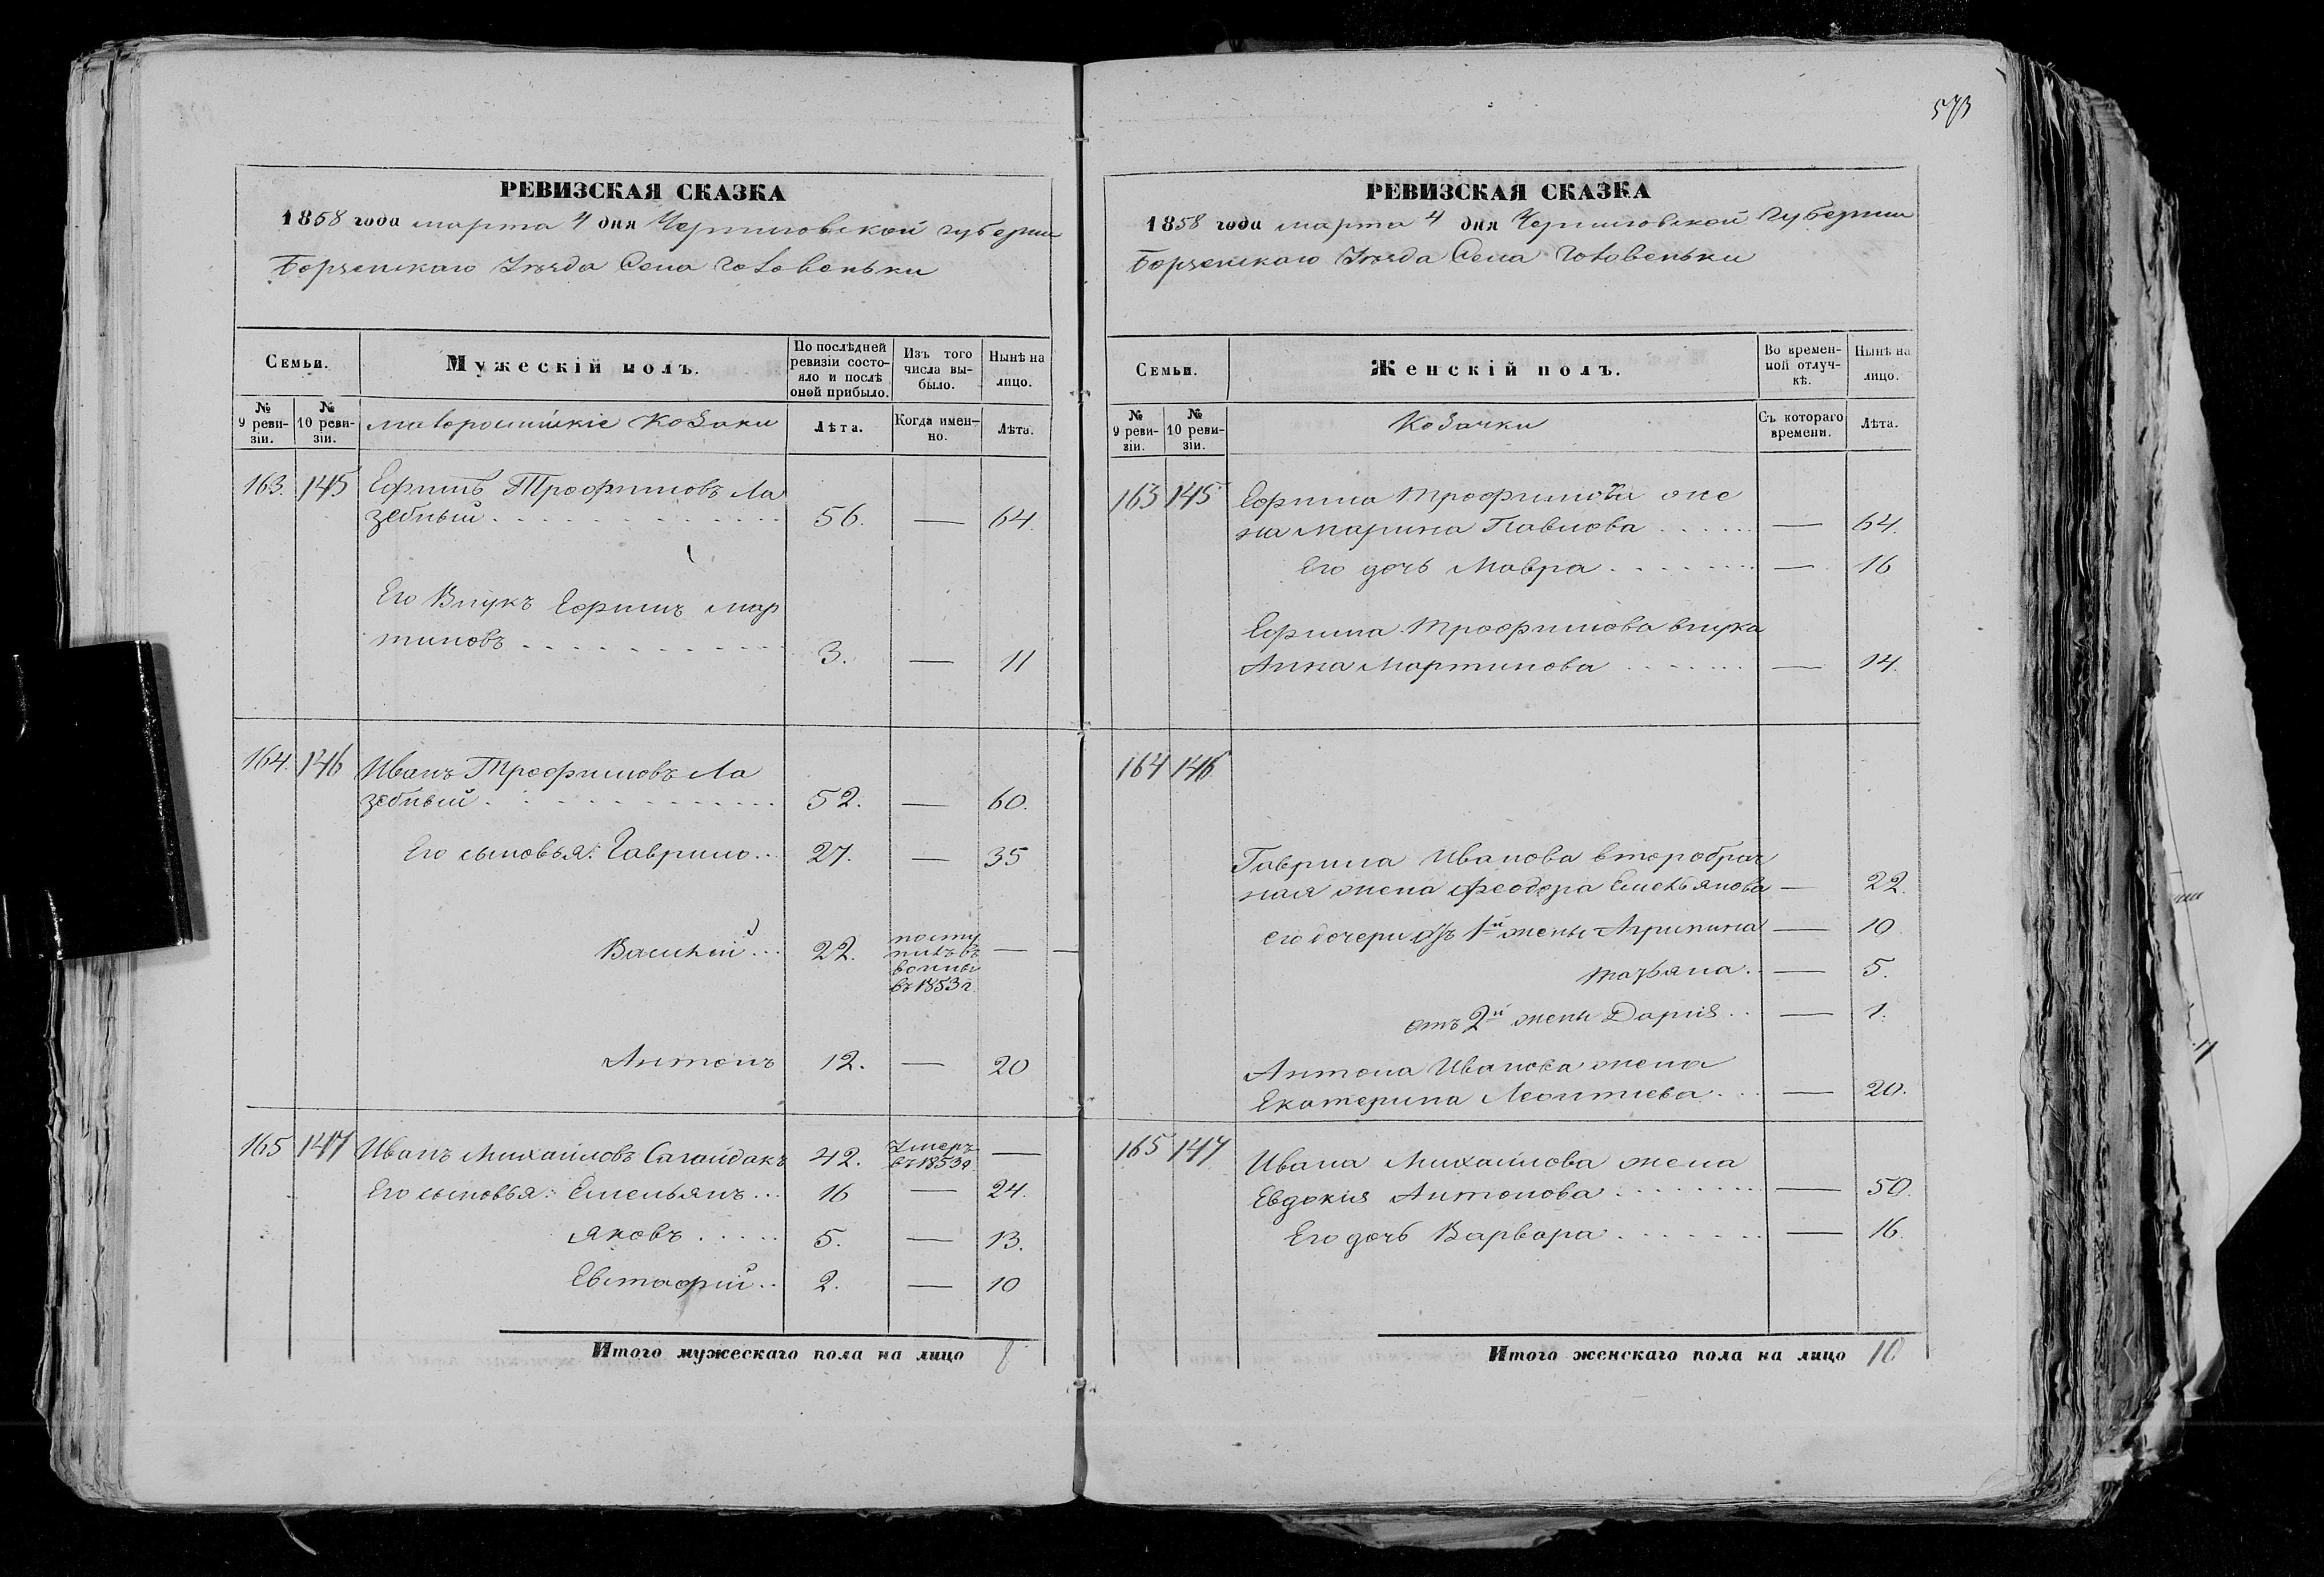 573
РЕВИЗСКАЯ СКАЗКА
1858 года марта 4 дня Черниговской губернии
Борзенскаго Уѣзда Села Головеньки
Семьи.
Мужескій полъ.
По послѣдней ревизіи состо-яло и послѣ оной прибыло.
Изъ того числа вы-было.
Нынѣ на лицо.
№ 9 реви-зіи.
№ 10 реви-зіи.
малороссійскіе Козаки
Лѣта.
Когда имен-но.
Лѣта.
163. 145 Ефимъ Трофимовъ Ла
зебный 56. — 64.
Его Внукъ Ефимъ Мар
тиновъ 3. — 11
164. 146 Иванъ Трофимовъ Ла
зебный 52. — 60.
Его сыновья: Гаврило.. 27. — 35
Василій... 22. посту
пилъ въ
воины
въ 1853 г. —
Антонъ 12. — 20
165 147 Иванъ Михайловъ Сагайдакъ 42. Умеръ
въ 1853 г —
Его сыновья: Емельянъ... 16 — 24.
Яковъ..... 5. — 13.
Евстафій.. 2. — 10
Итого мужескаго пола на лицо 8
РЕВИЗСКАЯ СКАЗКА
1858 года марта 4 дня Черниговской Губернии
Борзенскаго Уѣзда Села Головеньки
Семьи.
Женскій полъ.
Во времен-ной отлуч-кѣ.
Нынѣ на лицо.
№ 9 реви-зіи.
№ 10 реви-зіи.
Козачки
Съ котораго времени.
Лѣта.
163 145 Ефима Трофимова же
на Марина Павлова — 64.
Его дочь Мавра — 16
Ефима Трофимова внука
Анна Мартинова — 14.
164 146
Гаврила Иванова второбрач
ная жена Феодора Емельянова — 22.
его дочери отъ 1й жены Агрипина — 10
Татьяна. — 5.
отъ 2й жены Дарія.. — 1.
Антона Иванова жена
Екатерина Леонтиева... — 20.
165 147 Ивана Михайлова жена
Евдокія Антонова — 50.
Его дочь Варвара — 16.
Итого женскаго пола на лицо 10